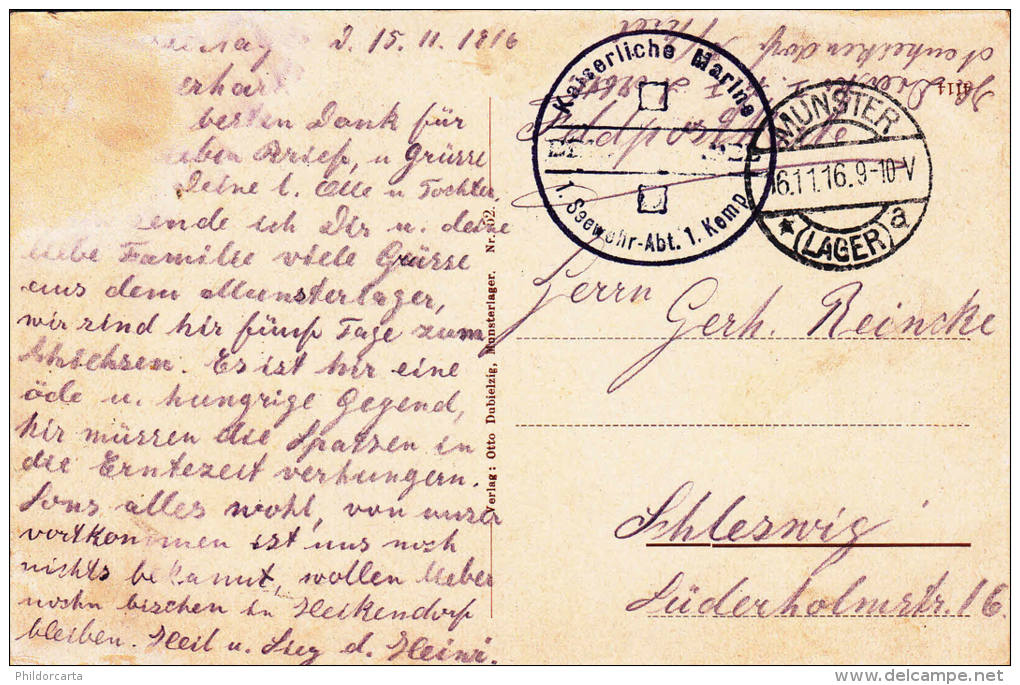 d. 15.11.1916
besten Dank für
Brief, u Grüsse
Deine l. Olle u Tochter,
sende ich Dir u. deine
liebe Familie viele Grüsse
aus dem Munsterlager,
wir sind hir fünf Tage zum
Schiehsen. Es ist hir eine
öde u. hungrige Gegend,
hir müssen die Spatzen in
die Erntezeit verhungern.
Sons alles wohl, von unser
vortkommen ist uns noch
nichts bekannt, wollen lieber
nochn bischen in Heikendorf
bleiben. Heil u. Sieg d. Heini.
Verlag: Otto Dubielzig, Munsterlager. Nr.
Neuheikendorf
Kaiserliche Marine
1. Seewehr-Abt. 1. Komp.
MUNSTER
16.11.16.9-10V
* (LAGER) a
Herrn
Gerh. Reincke
Schleswig
Süderholmstr. 16.
Phildorcarta
www.delcampe.net